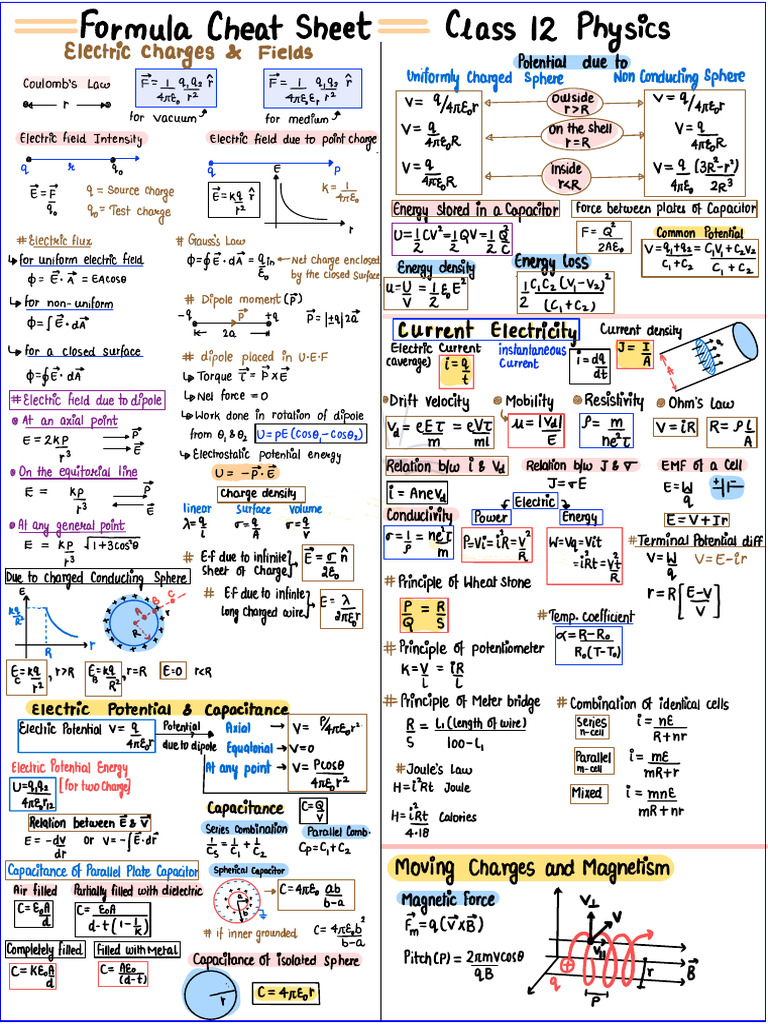 Formula Cheat Sheet
Class 12 Physics
Electric Charges & Fields
Coulomb's Law
r
F⃗ = 1/4πε₀ q₁q₂/r² r̂
for vacuum
F⃗ = 1/4πε₀εᵣ q₁q₂/r² r̂
for medium
Electric field Intensity
q r q₀
E⃗ = F⃗/q₀
q = Source charge
q₀ = Test charge
Electric field due to point charge
q P
E⃗ = kq/r² r̂
E
r
k = 1/4πε₀
# Electric flux
for uniform electric field
ϕ = E⃗·A⃗ = EAcosθ
for non-uniform
ϕ = ∫E⃗·dA⃗
for a closed surface
ϕ = ∮E⃗·dA⃗
# Gauss's Law
ϕ = ∮E⃗·dA⃗ = qin/ε₀
Net charge enclosed
by the closed Surface
# Dipole moment (P⃗)
-q P⃗ +q
2a
P⃗ = |±q|2a⃗
# dipole placed in U.E.F
Torque τ⃗ = P⃗×E⃗
Net force = 0
Work done in rotation of dipole
from θ₁ & θ₂ U = pE(cosθ₁-cosθ₂)
Electrostatic potential energy
U = -P⃗·E⃗
# Electric field due to dipole
At an axial point
E = 2KP/r³
P⃗
E⃗
On the equitorial line
E = KP/r³
P⃗
E⃗
At any general point
E = KP/r³ √1+3cos²θ
Charge density
linear Surface Volume
λ = q/l σ = q/A σ = q/V
# E.f due to infinite
sheet of Charge
E⃗ = σ/2ε₀ n̂
# E.f due to infinite
long charged wire
E = λ/2πε₀r
Due to charged Conducting Sphere
E
kq/R²
R r
A B C
R
E_C = kq/r², r>R
E_B = kq/R², r=R
E=0 r<R
Electric Potential & Capacitance
Electric Potential V = q/4πε₀r
Potential
due to dipole
Axial V = P/4πε₀r²
Equatorial V=0
At any point V = Pcosθ/4πε₀r²
Electric Potential Energy
U = q₁q₂/4πε₀r₁₂ [for two Charge]
Relation between E⃗ & V⃗
E = -dv/dr or V = -∫E⃗·dr⃗
Capacitance
C = Q/V
Series Combination
1/Cs = 1/C₁ + 1/C₂
Parallel Comb.
Cp = C₁+C₂
Capacitance of Parallel Plate Capacitor
Air filled
C = ε₀A/d
Partially filled with dielectric
C = ε₀A/d-t(1-1/K)
Completely filled
C = Kε₀A/d
Filled with Metal
C = Aε₀/(d-t)
Spherical Capacitor
a
b
C = 4πε₀ ab/b-a
# if inner grounded C = 4πε₀b²/b-a
Capacitance of isolated sphere
r
C = 4πε₀r
Potential due to
Uniformly Charged Sphere
Non Conducting Sphere
V = q/4πε₀r
Outside
r>R
V = q/4πε₀r
V = q/4πε₀R
On the shell
r=R
V = q/4πε₀R
V = q/4πε₀R
Inside
r<R
V = q/4πε₀ (3R²-r²)/2R³
Energy stored in a Capacitor
U = 1/2 CV² = 1/2 QV = 1/2 Q²/C
Force between plates of Capacitor
F = Q²/2Aε₀
Common Potential
V = q₁+q₂/C₁+C₂ = C₁V₁+C₂V₂/C₁+C₂
Energy density
u = U/V = 1/2 ε₀E²
Energy loss
1/2 C₁C₂(V₁-V₂)²/(C₁+C₂)
Current Electricity
Electric Current
(average)
i = q/t
instantaneous
Current
i = dq/dt
Current density
J = I/A
A
Drift velocity
Vd = eEτ/m = eVτ/ml
Mobility
μ = |Vd|/E
Resistivity
ρ = m/ne²τ
Ohm's Law
V = iR
R = ρL/A
Relation b/w i & Vd
i = AneVd
Relation b/w J & σ
J = σE
EMF of a Cell
E = W/q
+ -
E = V+Ir
Conductivity
σ = 1/ρ = ne²τ/m
Electric
Power
P=Vi=i²R=V²/R
Energy
W=Vq=Vit
=i²Rt=V²t/R
# Terminal Potential diff
V = W/q V = E-ir
r = R[E-V/V]
# Principle of Wheat stone
P/Q = R/S
# Temp. coefficient
α = R-R₀/R₀(T-T₀)
# Principle of potentiometer
K = V/l = iR/l
# Principle of Meter bridge
R/S = L₁(length of wire)/100-L₁
# Combination of identical cells
Series
n-cell
i = nE/R+nr
Parallel
m-cell
i = mE/mR+r
Mixed
i = mnE/mR+nr
# Joule's Law
H = i²Rt Joule
H = i²Rt/4.18 Calories
Moving Charges and Magnetism
Magnetic Force
F⃗m = q(V⃗×B⃗)
Pitch(P) = 2πmvcosθ/qB
V⊥
V
V∥
q
P
r
B⃗